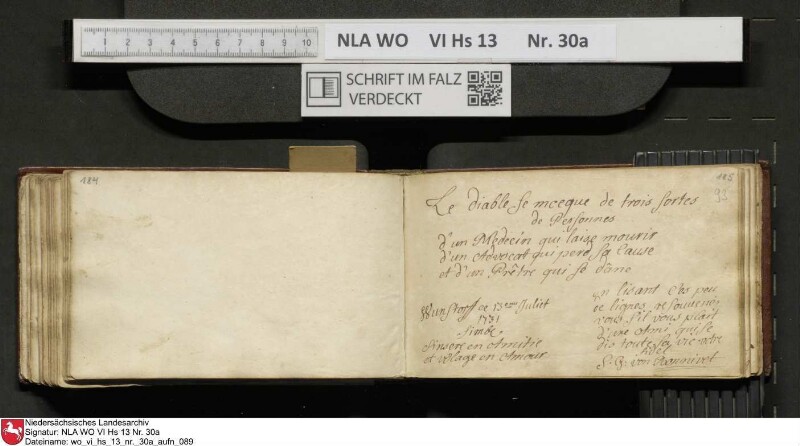 1 2 3 4 5 6 7 8 9 10
NLA WO VI Hs 13 Nr. 30a
SCHRIFT IM FALZ
VERDECKT
184
185
93
Le diable se mocque de trois sortes
de Personnes
d'un Médecin qui laise mourir
d'un Advocat qui perd sa Cause
et d'un Prêtre qui se dâne
Wunstorff ce 13 Juliet
1731
Simb:
Sinsere en Amitie
et volage en Amour
en lisant ces peu
de lignes resouvenés
vous s'il vous plait
d'une Ami, qui se
dit toute sa vie votre
fidel
von
Niedersächsisches Landesarchiv
Signatur: NLA WO VI Hs 13 Nr. 30a
Dateiname: wo_vi_hs_13_nr._30a_aufn_089